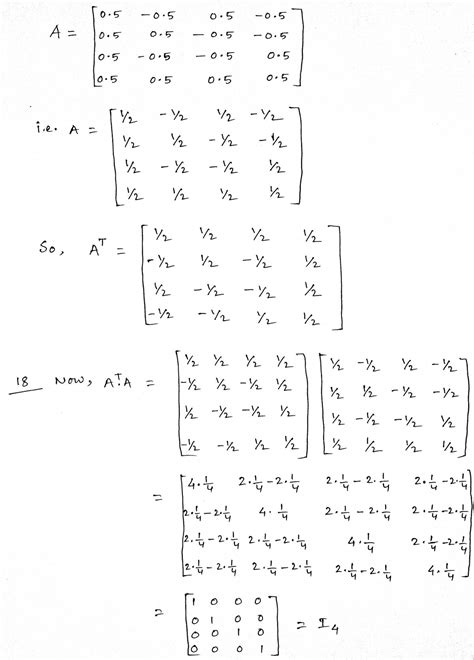 A = [0.5 -0.5 0.5 -0.5
0.5 0.5 -0.5 -0.5
0.5 -0.5 -0.5 0.5
0.5 0.5 0.5 0.5]
i.e. A = [1/2 -1/2 1/2 -1/2
1/2 1/2 -1/2 -1/2
1/2 -1/2 -1/2 1/2
1/2 1/2 1/2 1/2]
So, A^T = [1/2 1/2 1/2 1/2
-1/2 1/2 -1/2 1/2
1/2 -1/2 -1/2 1/2
-1/2 -1/2 1/2 1/2]
18 Now, A^T.A = [1/2 1/2 1/2 1/2] [1/2 -1/2 1/2 -1/2]
[-1/2 1/2 -1/2 1/2] [1/2 1/2 -1/2 -1/2]
[1/2 -1/2 -1/2 1/2] [1/2 -1/2 -1/2 1/2]
[-1/2 -1/2 1/2 1/2] [1/2 1/2 1/2 1/2]
= [4·1/4 2·1/4-2·1/4 2·1/4-2·1/4 2·1/4-2·1/4
2·1/4-2·1/4 4·1/4 2·1/4-2·1/4 2·1/4-2·1/4
2·1/4-2·1/4 2·1/4-2·1/4 4·1/4 2·1/4-2·1/4
2·1/4-2·1/4 2·1/4-2·1/4 2·1/4-2·1/4 4·1/4]
= [1 0 0 0
0 1 0 0
0 0 1 0
0 0 0 1] = I4